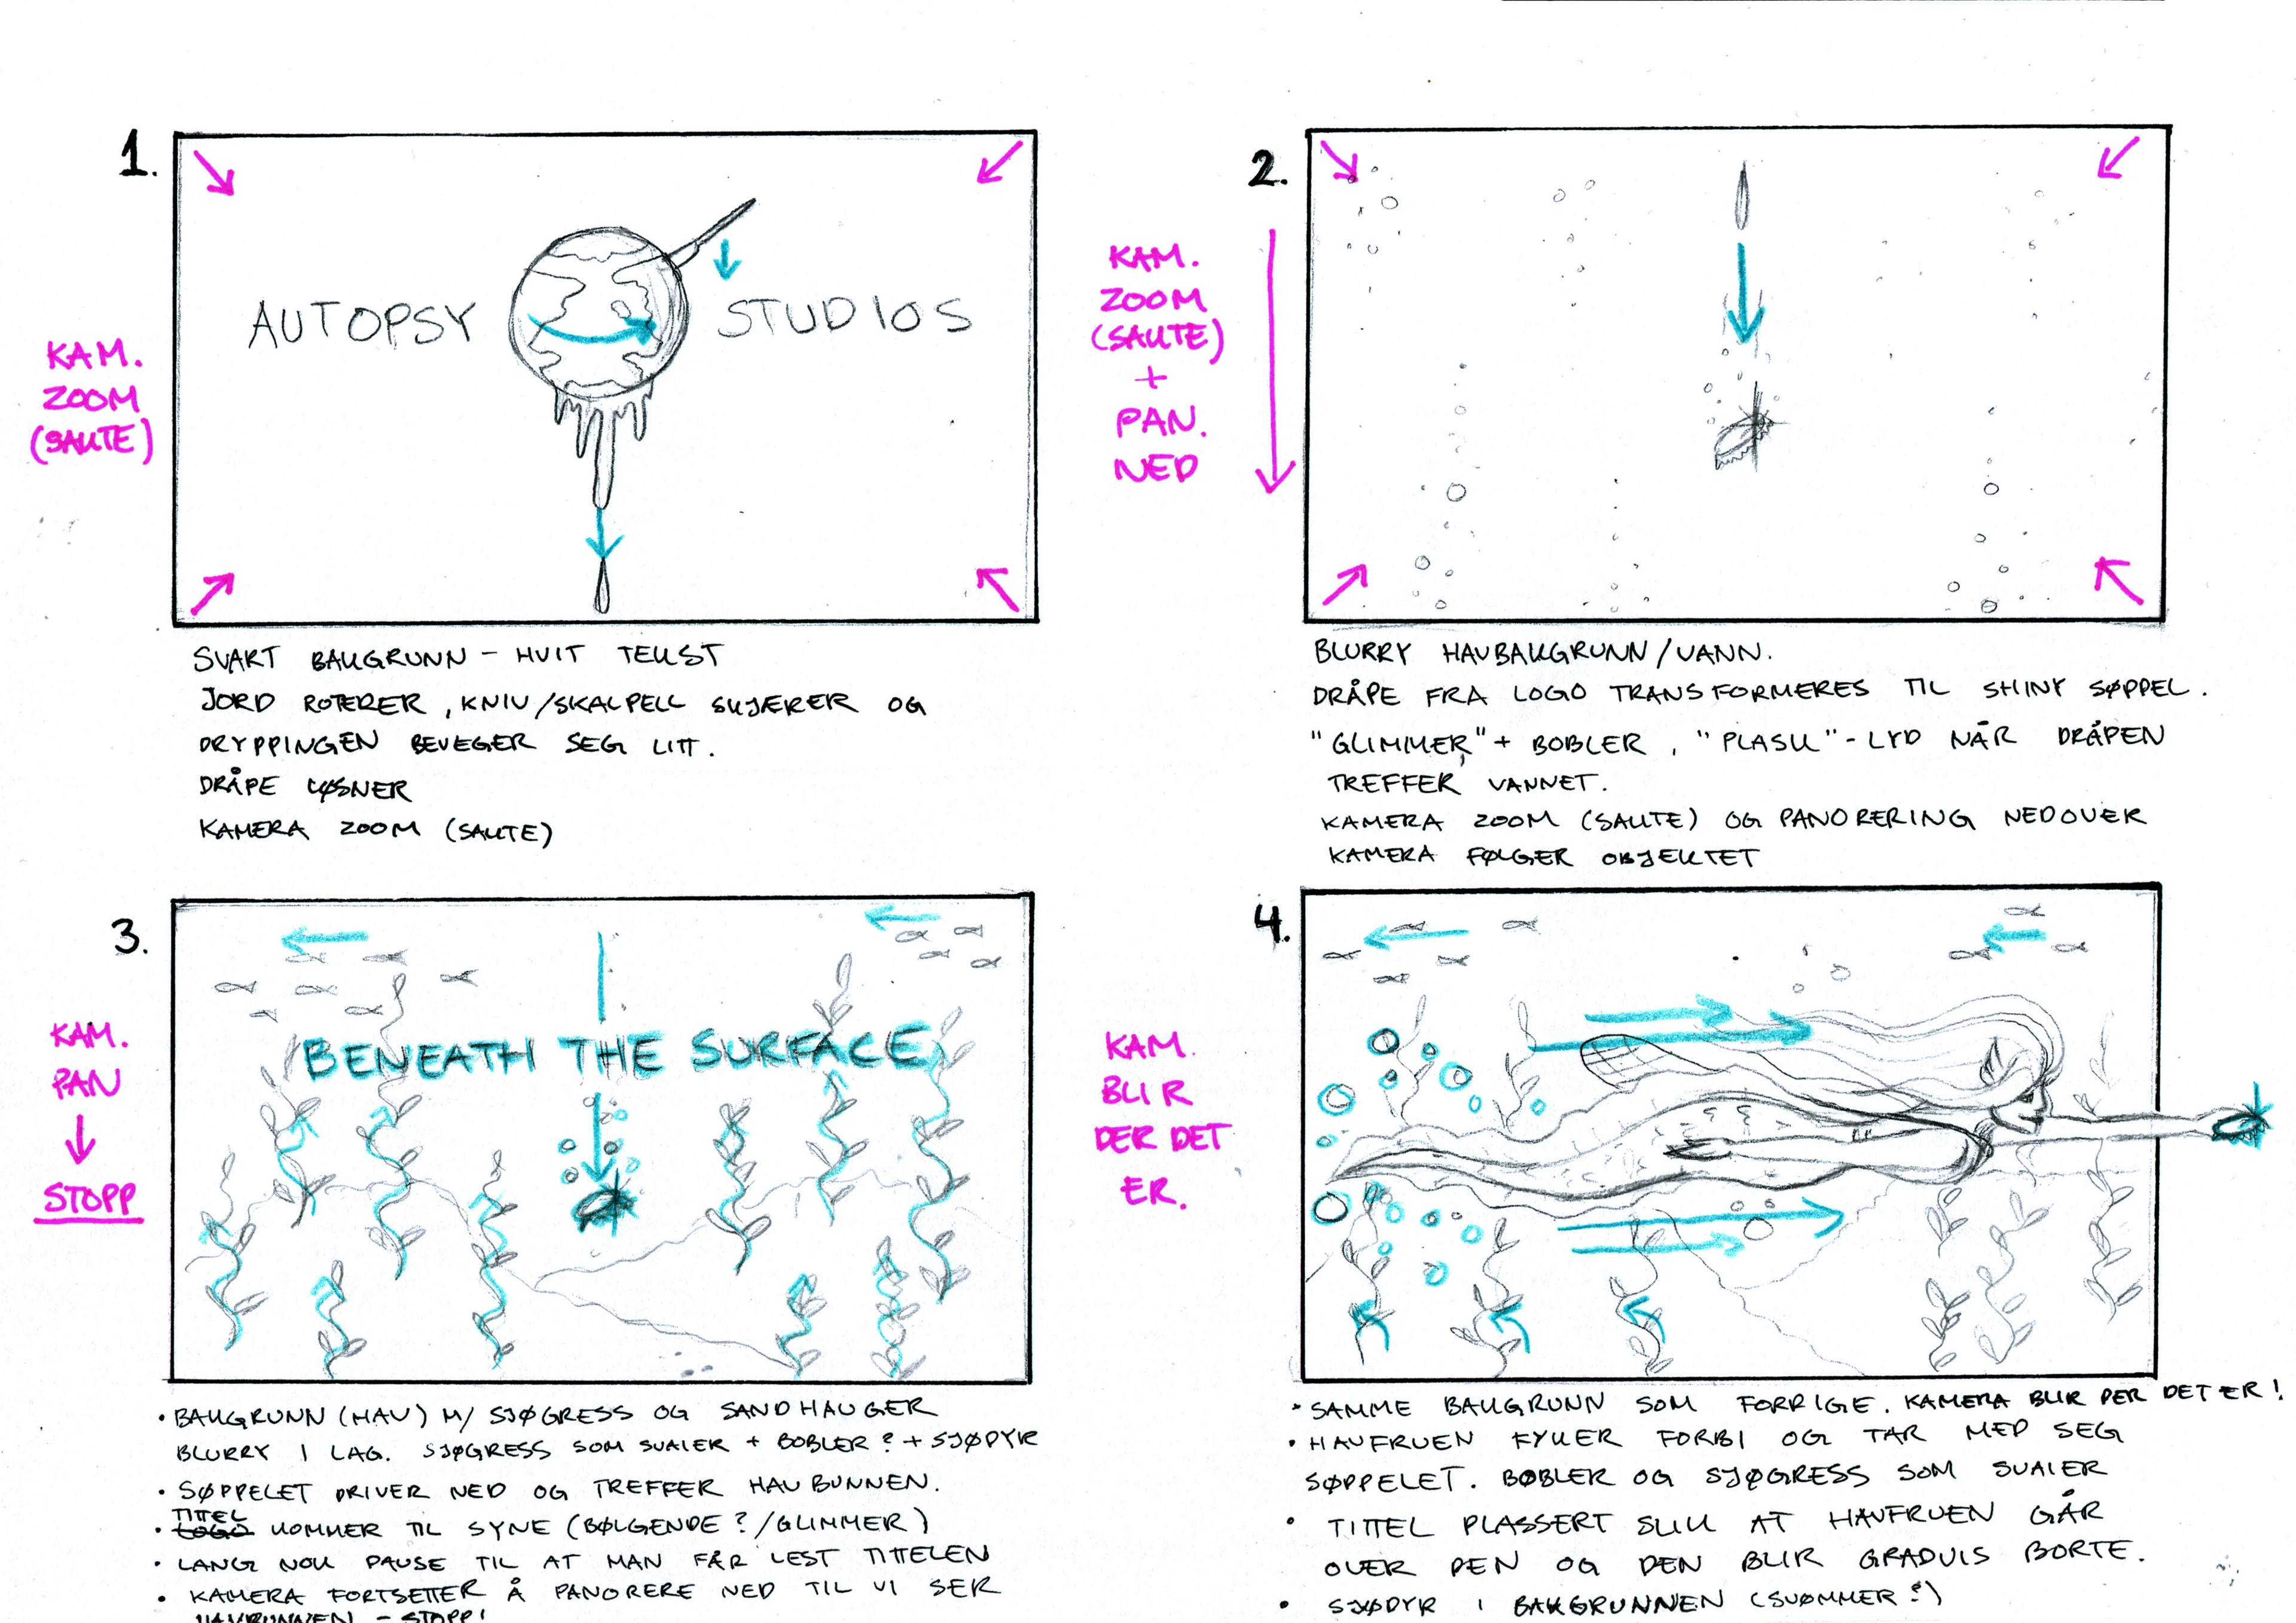 1.
AUTOPSY STUDIOS
KAM.
ZOOM
(SAKTE)
SVART BAKGRUNN - HVIT TEKST
JORD ROTERER, KNIV/SKALPELL SKJÆRER OG
DRYPPINGEN BEVEGER SEG LITT.
DRÅPE LØSNER
KAMERA ZOOM (SAKTE)
2.
KAM.
ZOOM
(SAKTE)
+
PAN.
NED
BLURRY HAVBAKGRUNN/VANN.
DRÅPE FRA LOGO TRANSFORMERES TIL SHINY SØPPEL.
"GLIMMER" + BOBLER, "PLASK"-LYD NÅR DRÅPEN
TREFFER VANNET.
KAMERA ZOOM (SAKTE) OG PANORERING NEDOVER
KAMERA FØLGER OBJEKTET
3.
KAM.
PAN
↓
STOPP
BENEATH THE SURFACE
• BAKGRUNN (HAV) M/ SJØGRESS OG SANDHAUGER
BLURRY I LAG. SJØGRESS SOM SVAIER + BOBLER? + SJØDYR
• SØPPELET DRIVER NED OG TREFFER HAVBUNNEN.
TITTEL
• LOGO KOMMER TIL SYNE (BØLGENDE?/GLIMMER)
• LANG NOK PAUSE TIL AT MAN FÅR LEST TITTELEN
• KAMERA FORTSETTER Å PANORERE NED TIL VI SER
HAVBUNNEN - STOPP!
4.
KAM.
BLIR
DER DET
ER.
• SAMME BAKGRUNN SOM FORRIGE. KAMERA BLIR DER DET ER!
• HAVFRUEN FYKER FORBI OG TAR MED SEG
SØPPELET. BOBLER OG SJØGRESS SOM SVAIER
• TITTEL PLASSERT SLIK AT HAVFRUEN GÅR
OVER DEN OG DEN BLIR GRADVIS BORTE.
• SJØDYR I BAKGRUNNEN (SVØMMER?)